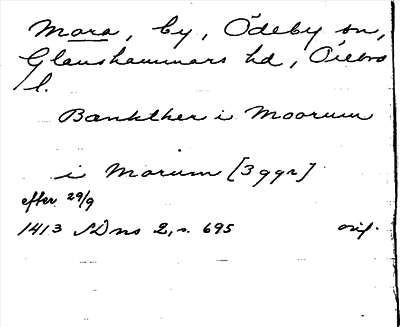 Mora, by, Ödeby sn,
Glanshammars hd, Örebro
l.
Bankther i Moorum
i Morum [3 ggr]
efter 29/9
1413 SDns 2, s. 695 orig.